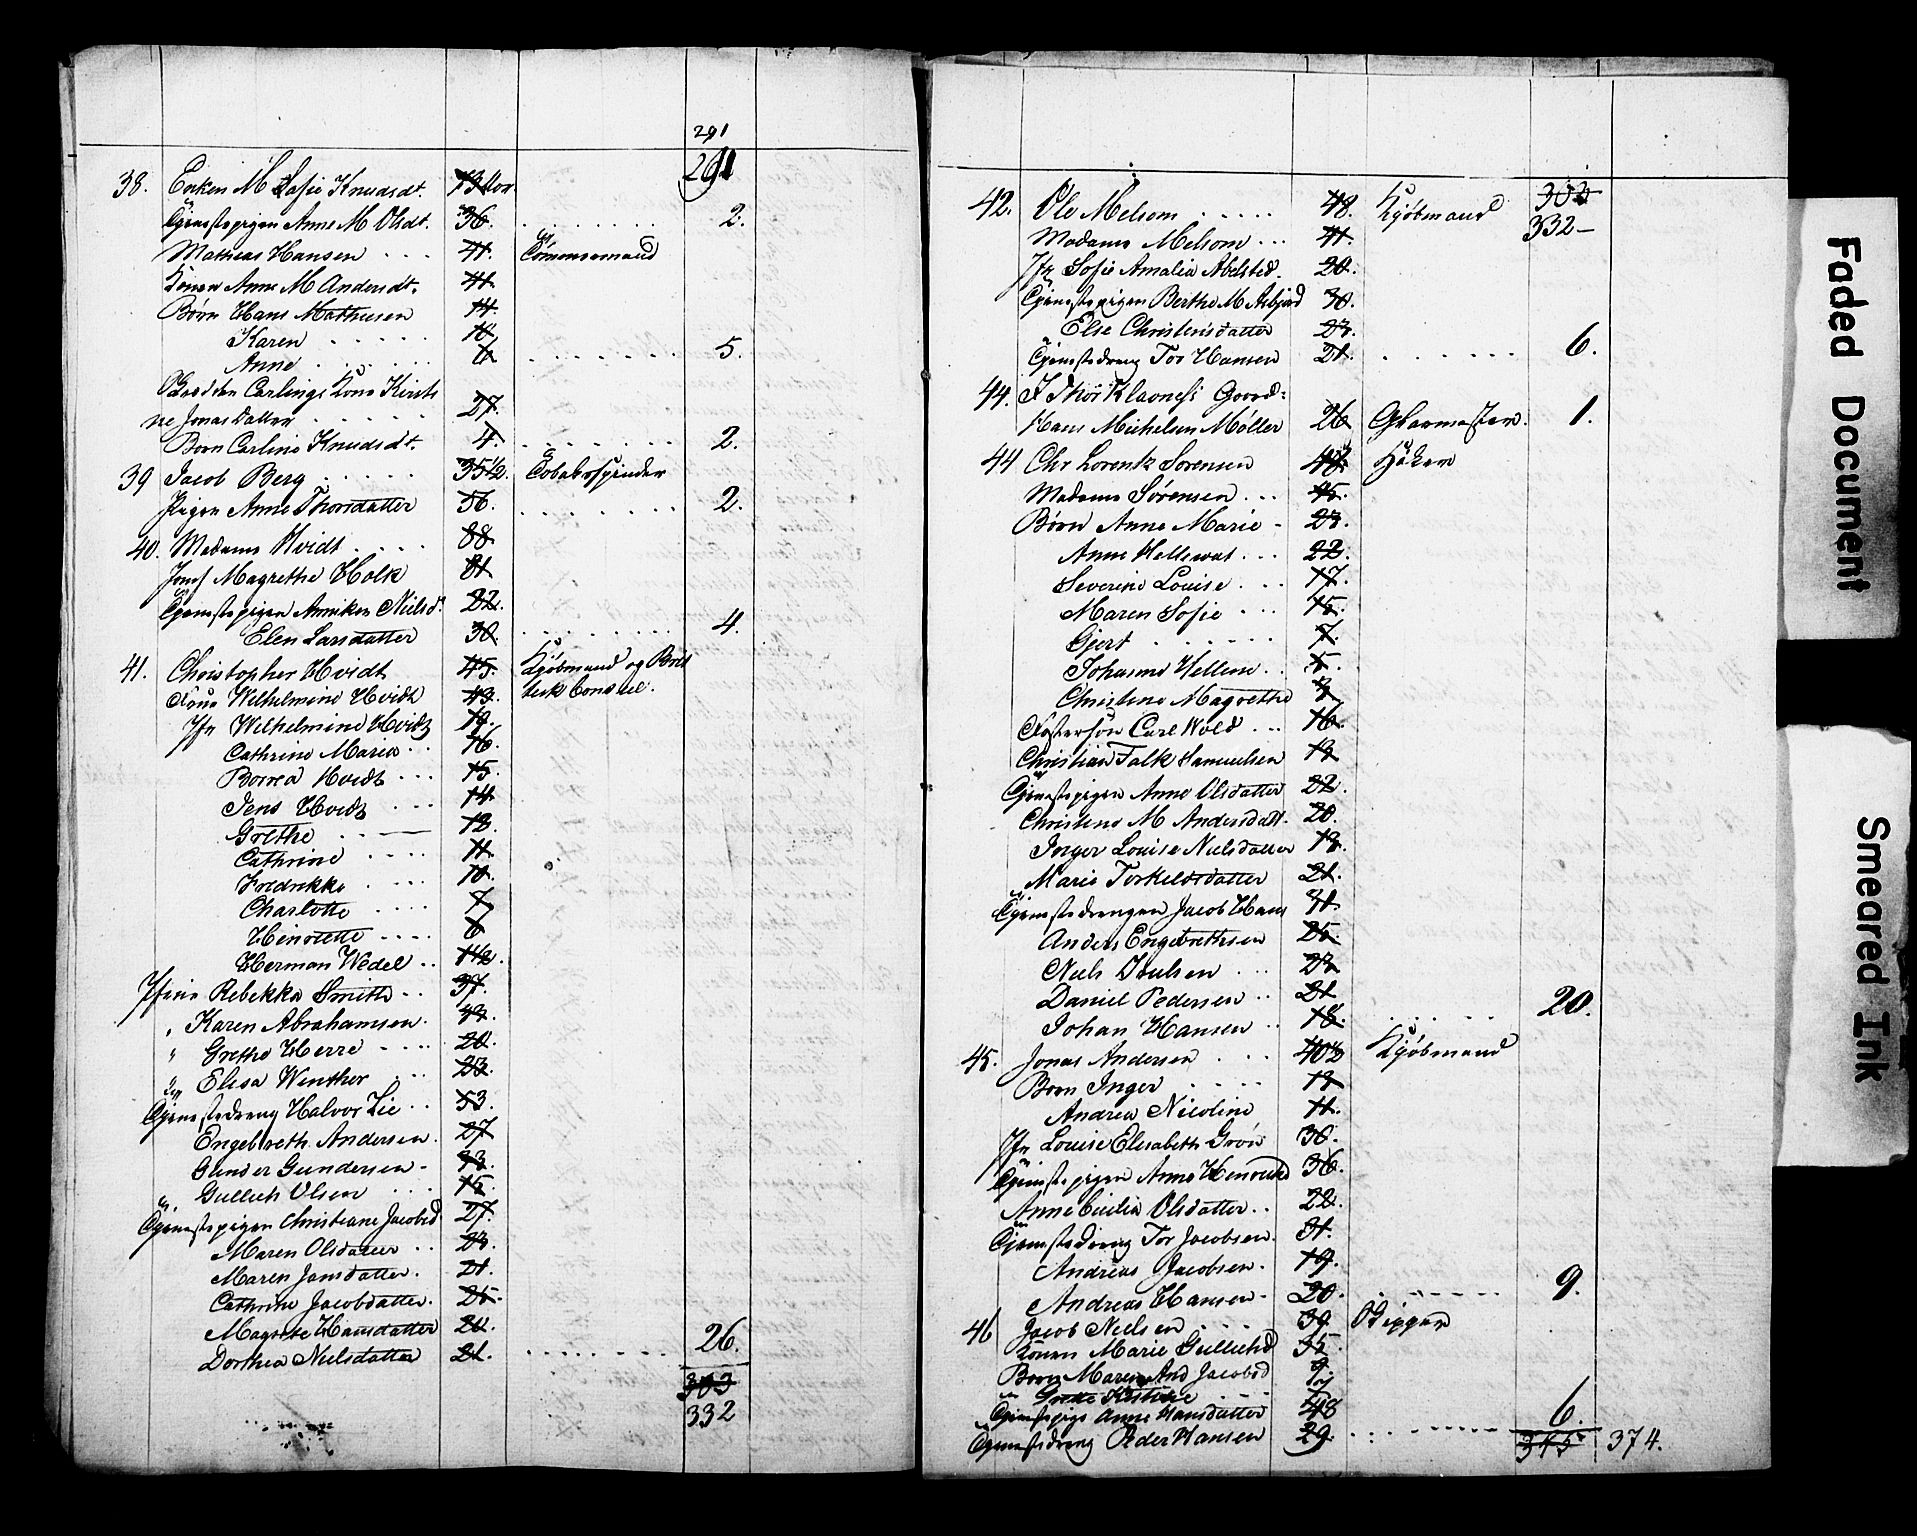 291
291
38. Enken M Sofie Knudsdt. 73
Tjenestepigen Anne M Olsdt. 36. 2.
Mathias Hansen 41. Tømmermand
Konen Anne M Andersdt. 41.
Børn Hans Mathiesen 14.
Karen 10.
Anne 6 5.
Carlings Kone Kirsti
ne Jonasdatter 27.
Børn Carline Knudsdt. 4. 2.
39 Jacob Berg 35 1/2. Tobakspinder
Pigen Anne Thorsdatter 56. 2.
40. Madame Hvidt 88
Jomf Magrethe Holk 81
Tjenestepigen Anniken Nielsd. 22.
Elen Larsdatter 30. 4.
41. Christopher Hvidt 45. Kjøbmand og Brit
Kone Wilhelmine Hvidt 43. tisk Consul.
Jfr Wilhelmine Hvidt 19.
Cathrine Maria 16.
Hvidt 15.
Jens Hvidt 14.
Grethe 12.
Cathrine 11.
Fredrikke 10.
Charlotte 7
Henriette 6
Herman Wedel 1 1/2.
Rebekka Smith 37.
" Karen Abrahamsen.
" Grethe Herre 20.
" Elisa Winther 23.
Tjenestedreng Halvor Lie 53.
Engebreth Andersen. 27
Gunder Gundersen
Gullich Olsen 15.
Tjenestepigen Christiane Jacobsd 27.
Maren Olsdatter 23.
Maren Jansdatter. 21.
Cathrine Jacobsdatter. 25.
Magrete Hansdatter
Dorthea Nielsdatter 21. 26.
303
332
303
42. Ole Melsom 48. Kjøbmand 332
Madame Melsom 41.
Jfr Sofie Amalia Abelsted. 20.
Tjenestepigen Berthe M Asbjørd 30.
Else Christensdatter 23.
Tjenestedreng Tor Hansen 21. 6.
44. Klavnes Goord:
Hans Michelsen Møller 26 Glarmester. 1.
44 Chr Lorentz Sorensen 48. Høker
Madame Sørensen 45.
Børn Anne Marie 23.
Anne 22.
Severine Louise 17.
Maren Sofie 15.
Gjert 7.
Johanne Hellene 5.
Christine Magrethe
Fostersøn Carl Wold 16.
Christian Falk Samuelsen
Tjenestepigen Anne Olsdatter 22.
Christine M Andersdatt. 20.
Inger Louise Nielsdatter
Marie Torkeldsdatter 21.
Tjenestedrengen Jacob Hans 31.
Anders Engebrethsen 25.
Niels 23.
Daniel Pedersen 21
Johan Hansen 18. 20.
45. Jonas Andersen 40 1/2 Kjøbmand
Børn Inger 13.
Andrea Nicoline 11.
Jfr Louise Elisabeth Grøn 30.
Tjenestepigen Anne 36.
Anne Cicilia Olsdatter 22.
Tjenestedreng Tor Jacobsen. 31.
Andreas Jacobsen. 19.
Andreas Hansen 20. 9.
46 Jacob Nielsen 39
Konen Marie Gullichsd 35.
Børn Maren And Jacobsd 9.
Grethe
Tjenestepige Anne Hansdatter 48 6.
Tjenestedreng Peder Hansen 29. 374.
Faded Document
Smeared Ink